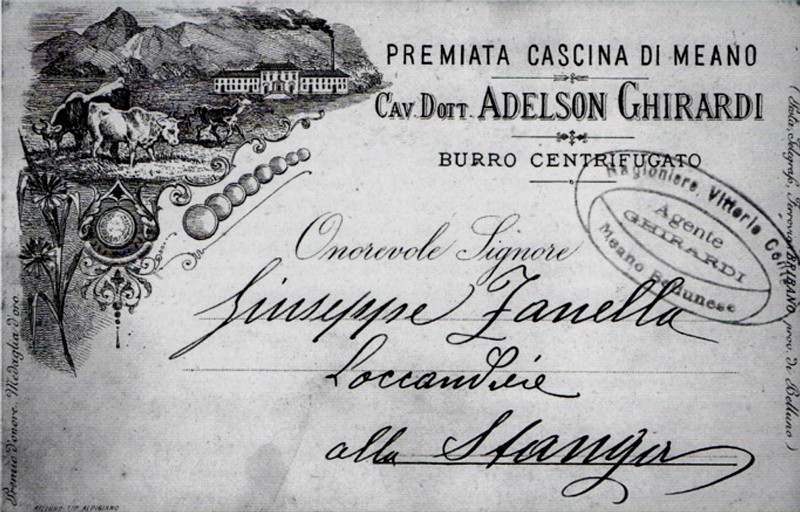 PREMIATA CASCINA DI MEANO
CAV. DOTT. ADELSON GHIRARDI
BURRO CENTRIFUGATO
Ragioniere Vittorio
Agente
GHIRARDI
Meano Bellunese
Onorevole Signore
Giuseppe Zanella
Loccandiere
alla Stanga
Premio d'onore. Medaglia d'oro
(Posta, Telegrafo, Ferrovia BRIBANO prov. di Belluno)
MILANO-TIP. ALPIGIANO